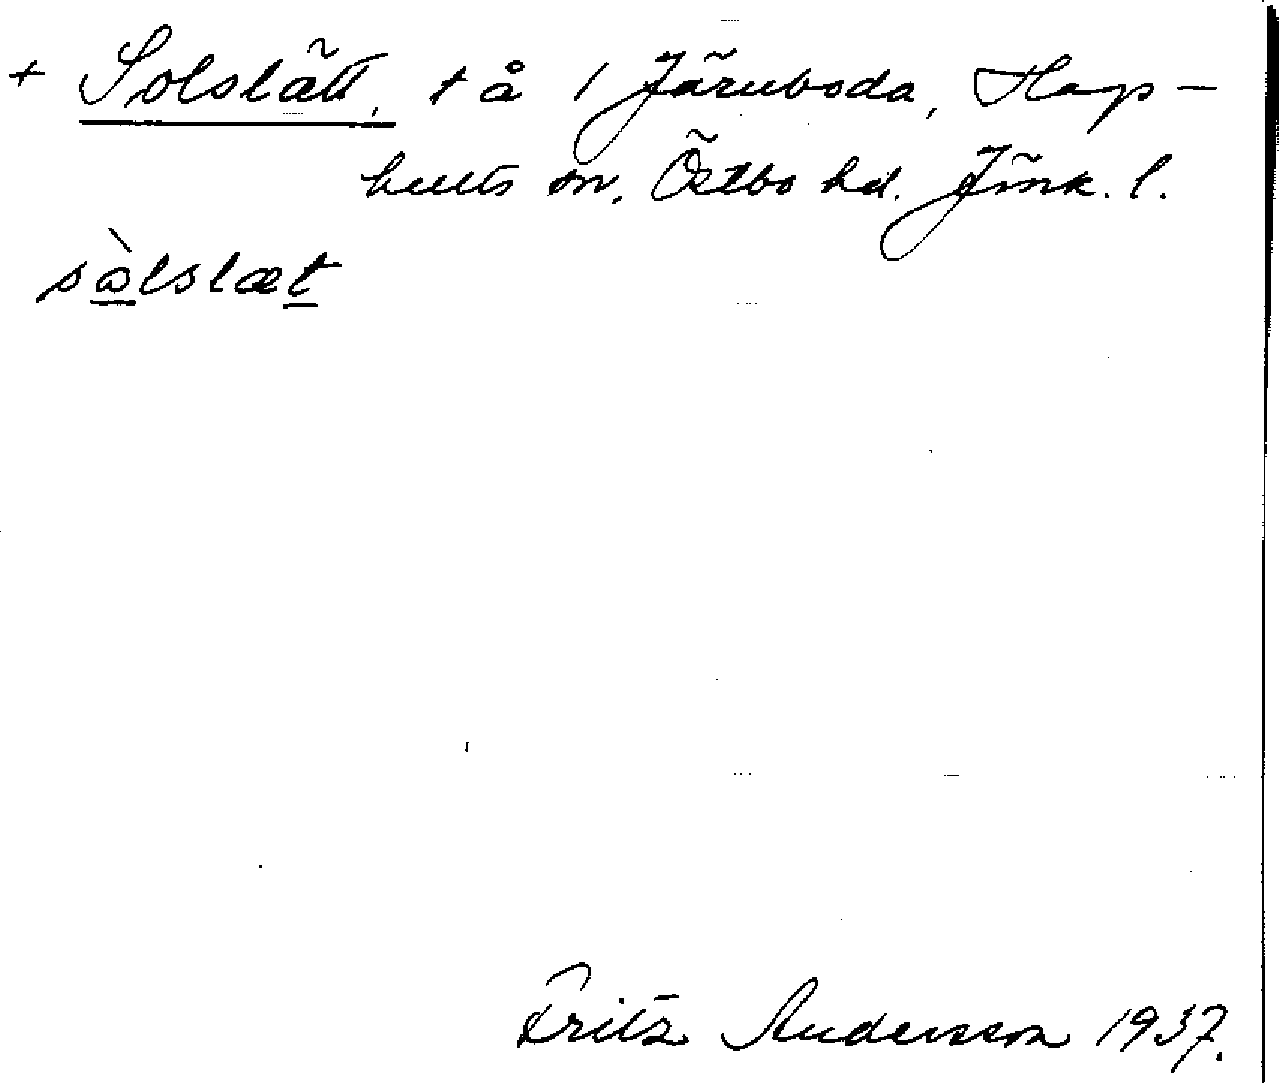 + Solslätt, t å / Järnboda, Hag-
hults sn, Östbo hd. Jönk. l.
sòlslæt
Fritz Andersson 1937.